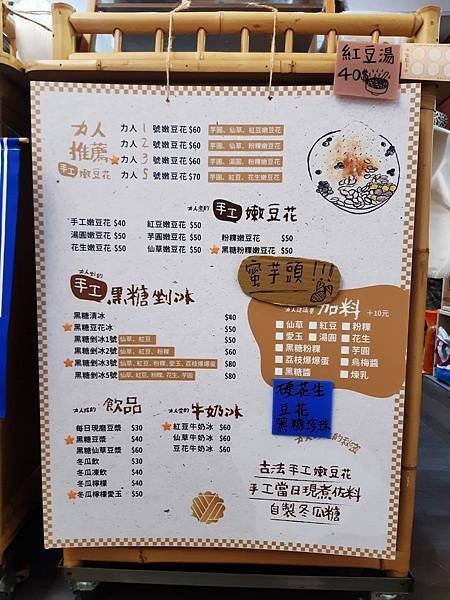 紅豆湯
40$
力人推薦
手工嫩豆花
力人 1 號嫩豆花 $60 芋圓、仙草、紅豆嫩豆花
力人 2 號嫩豆花 $60 芋圓、仙草、粉粿嫩豆花
力人 3 號嫩豆花 $60 芋圓、湯圓、粉粿嫩豆花
力人 5 號嫩豆花 $70 芋圓、紅豆、花生嫩豆花
手工 嫩豆花
手工嫩豆花 $40 紅豆嫩豆花 $50
湯圓嫩豆花 $50 芋圓嫩豆花 $50 粉粿嫩豆花 $50
花生嫩豆花 $50 仙草嫩豆花 $50 黑糖粉粿嫩豆花 $50
蜜芋頭!!!
手工 黑糖剉冰
黑糖清冰 $40
黑糖豆花冰 $50
黑糖剉冰1號 仙草、紅豆 $50
黑糖剉冰2號 仙草、紅豆、粉粿 $60
黑糖剉冰3號 仙草、紅豆、粉粿、愛玉、荔枝爆爆蛋 $80
黑糖剉冰5號 仙草、紅豆、粉粿、花生、芋圓 $80
加料 +10元
仙草 紅豆 粉粿
愛玉 湯圓 花生
黑糖粉粿 芋圓
荔枝爆爆蛋 烏梅醬
黑糖醬 煉乳
硬花生
豆花
黑糖珍珠
飲品
每日現磨豆漿 $30
黑糖豆漿 $40
黑糖仙草豆漿 $60
冬瓜飲 $30
冬瓜凍飲 $40
冬瓜檸檬 $40
冬瓜檸檬愛玉 $50
牛奶冰
紅豆牛奶冰 $60
仙草牛奶冰 $60
豆花牛奶冰 $60
古法手工嫩豆花
手工當日現煮佐料
自製冬瓜糖